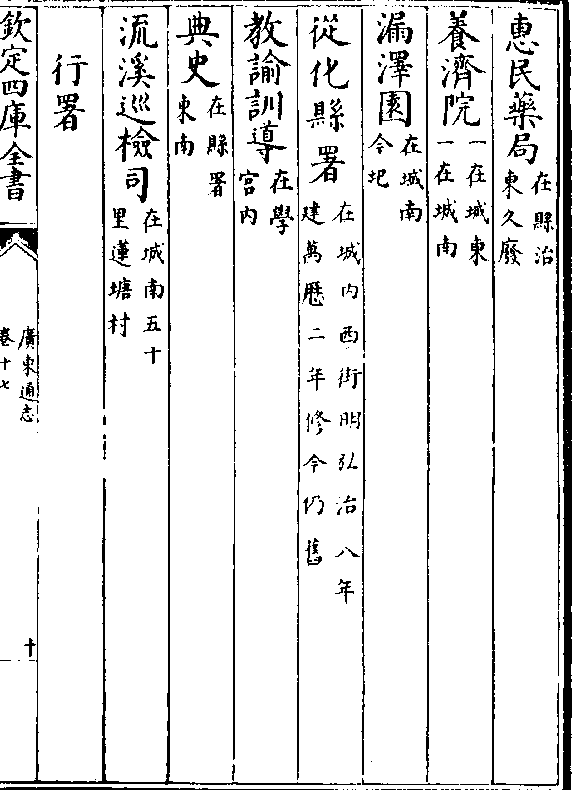 惠民藥局在縣治東久廢
養濟院一在城東一在城南
漏澤園在城南今圯
從化縣署在城内西街明弘治八年建萬厯二年修今仍舊
教諭訓導在學宮内
典史在縣署東南
流溪巡檢司在城南五十里蓮塘村
行署
欽定四庫全書
廣東通志
卷十七
十